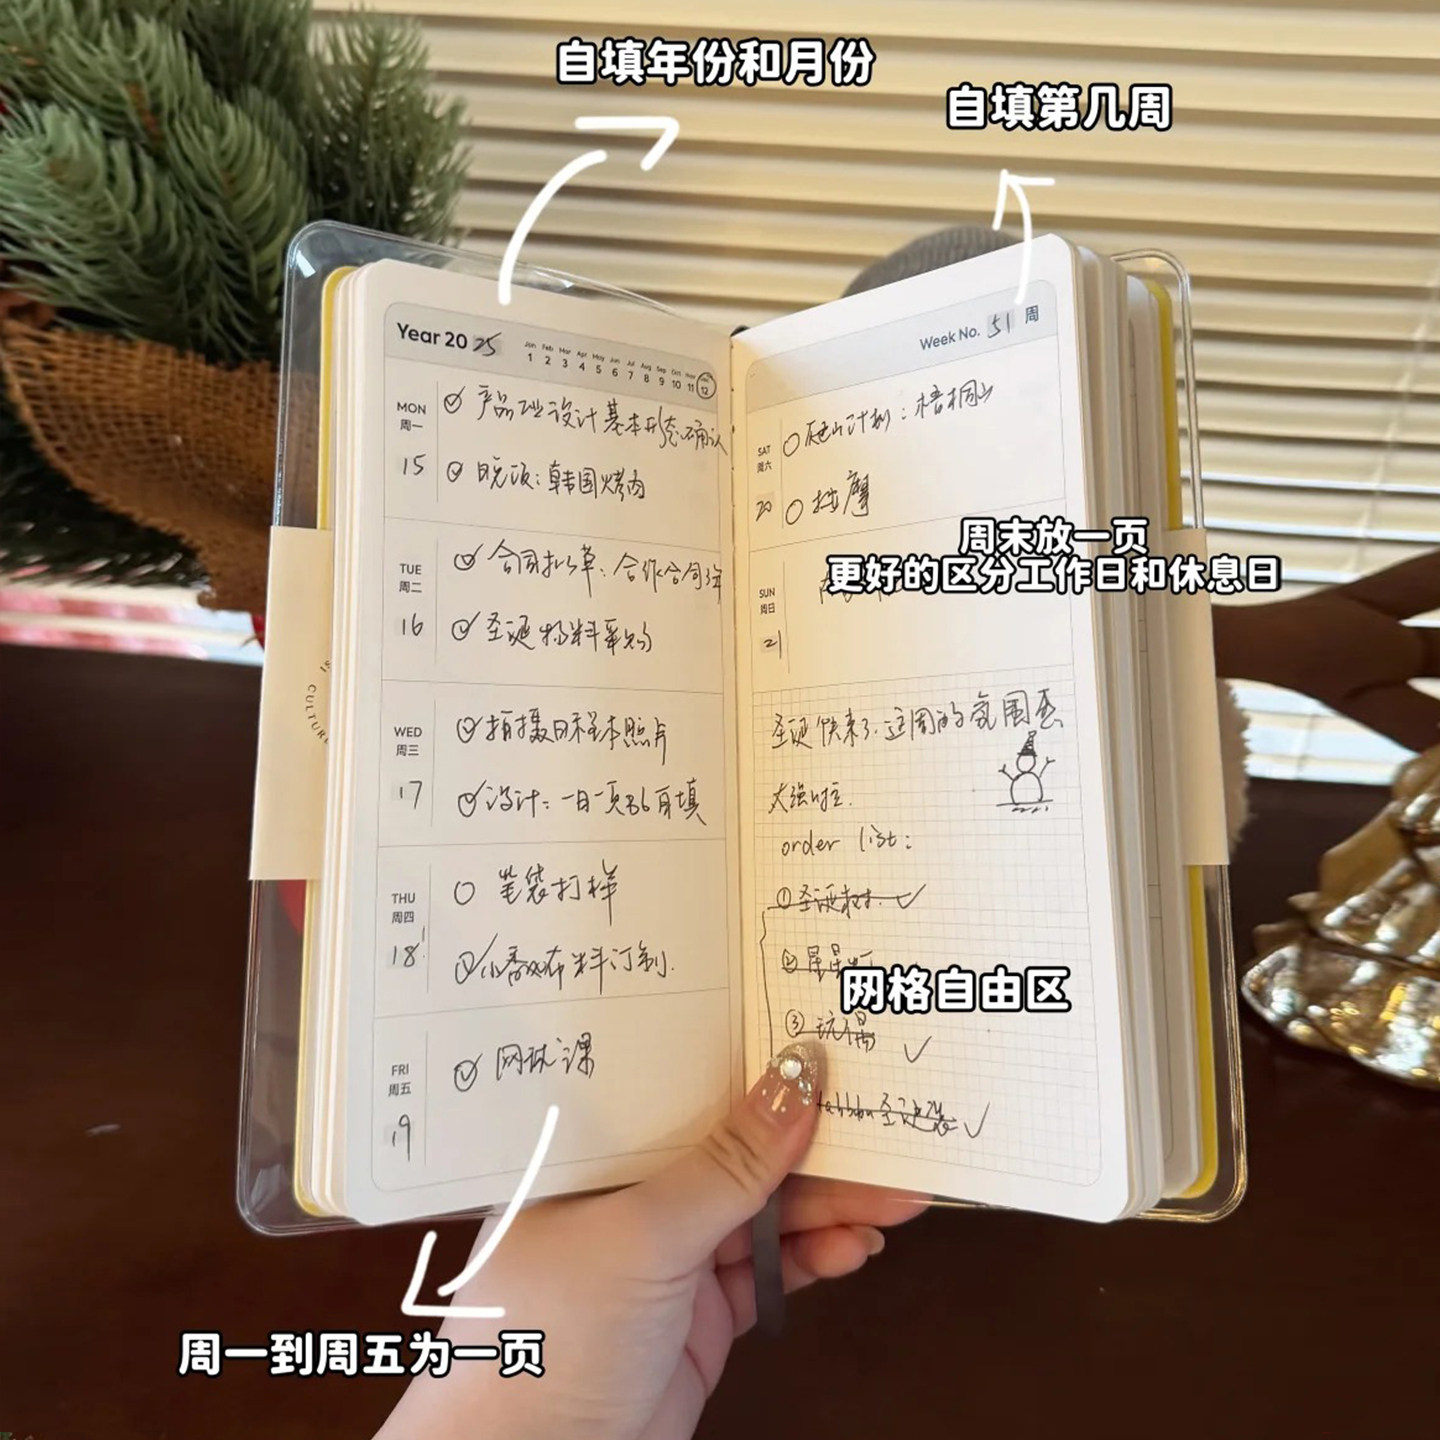 自填年份和月份
自填第几周
Year 20 25
Jan Feb Mar Apr May Jun Jul Aug Sep Oct Nov Dec
1 2 3 4 5 6 7 8 9 10 11 12
MON
周一
15
产品 设计基本形态确认
晚饭:韩国烤肉
TUE
周二
16
合同拟草:合作合同
圣诞物料采购
WED
周三
17
拍摄日程本照片
设计:一日一页 自填
THU
周四
18
笔袋打样
小香风布料订制.
FRI
周五
19
网球课
周一到周五为一页
Week No. 51 周
SAT
周六
20
爬山计划:梧桐山
按摩
周末放一页
更好的区分工作日和休息日
SUN
周日
21
圣诞快来了.这周的氛围感
太强
order list:
①圣诞树.
②星星灯
网格自由区
③玩偶
圣诞装
CULTURE